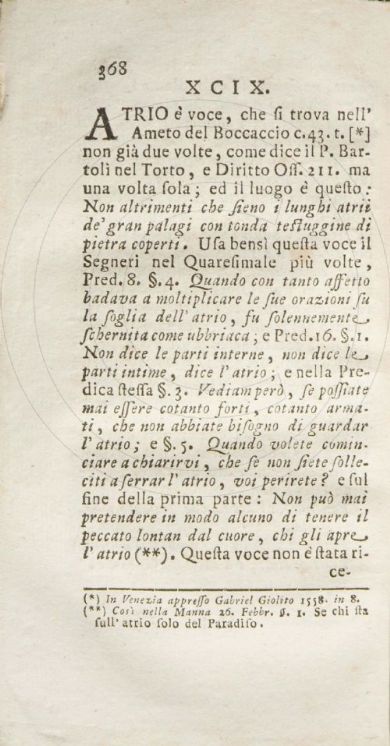 368
XCIX.
ATRIO è voce, che si trova nell'
Ameto del Boccaccio c.43. t. [*]
non già due volte, come dice il P. Bar-
toli nel Torto, e Diritto Oss. 211. ma
una volta sola; ed il luogo è questo:
Non altrimenti che sieno i lunghi atrii
de' gran palagi con tonda testuggine di
pietra coperti. Usa bensì questa voce il
Segneri nel Quaresimale più volte,
Pred. 8. §. 4. Quando con tanto affetto
badava a moltiplicare le sue orazioni su
la soglia dell' atrio, fu solennemente
schernita come ubbriaca; e Pred. 16. §. 1.
Non dice le parti interne, non dice le
parti intime, dice l' atrio; e nella Pre-
dica stessa §. 3. Vediam però, se possiate
mai essere cotanto forti, cotanto arma-
ti, che non abbiate bisogno di guardar
l' atrio; e §. 5. Quando volete comin-
ciare a chiarirvi, che se non siete solle-
citi a serrar l' atrio, voi perirete? e sul
fine della prima parte: Non può mai
pretendere in modo alcuno di tenere il
peccato lontan dal cuore, chi gli apre
l' atrio (**). Questa voce non è stata ri-
ce-
(*) In Venezia appresso Gabriel Giolito 1558. in 8.
(**) Così nella Manna 26. Febbr. §. 1. Se chi sta
sull' atrio solo del Paradiso.